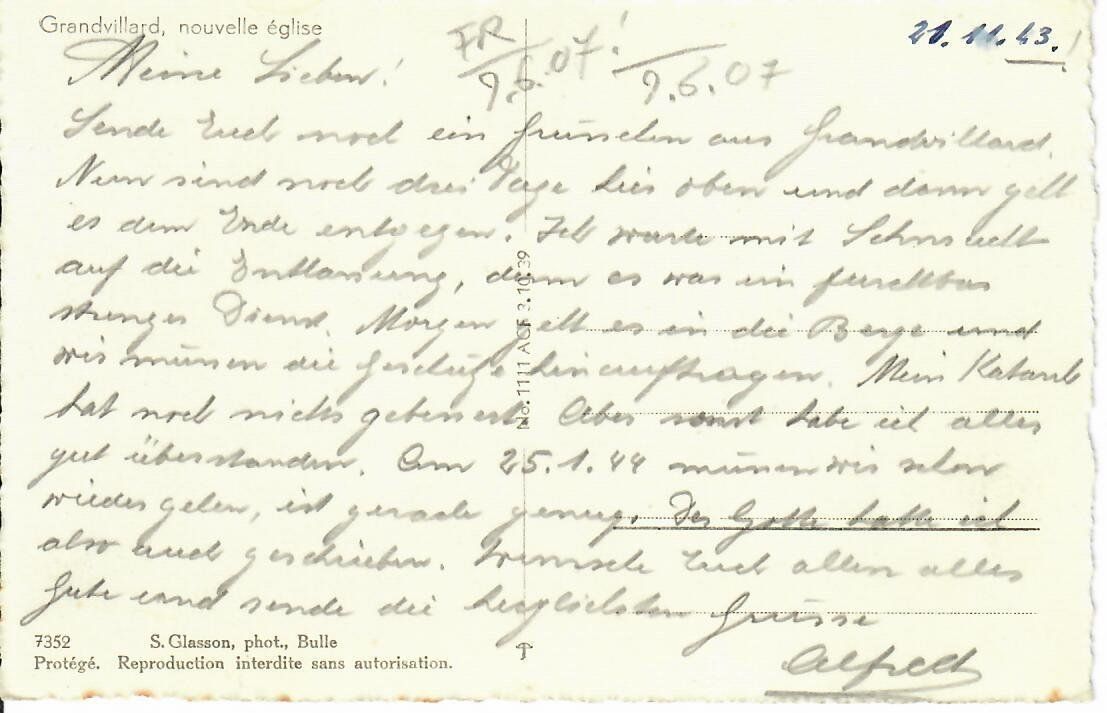 Grandvillard, nouvelle église
21.11.43.!
FR
9.6.07!
9.6.07
Meine Lieben!
Sende Euch noch ein Grüschen aus Grandvillard.
Nun sind noch drei Tage hier oben und dann geht
es dem Ende entgegen. Ich warte mit Sehnsucht
auf die Entlassung, denn es war ein furchtbar
strenger Dienst. Morgen geht es in die Berge und
wir müssen die Geschütze hinauftragen. Mein Katarrh
hat noch nichts gebessert. Aber sonst habe ich alles
gut überstanden. Am 25.1.44 müssen wir schon
wieder gehen, ist gerade genug. Der Gotte hatte ich
also auch geschrieben. Wünsche Euch allen alles
Gute und sende die herzlichsten Grüsse
Alfred
No. 1111 ACF 3.10.39
7352 S. Glasson, phot., Bulle
Protégé. Reproduction interdite sans autorisation.